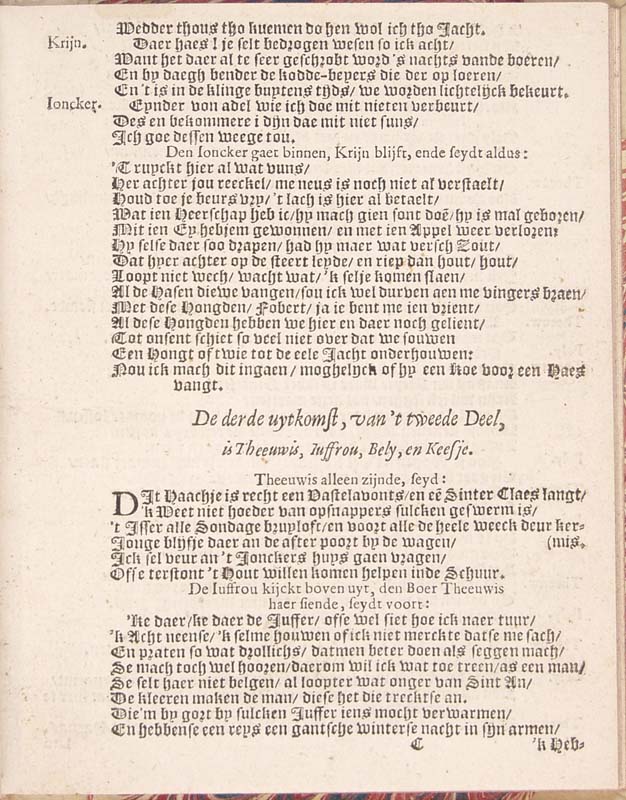 Wedder thous tho kuemen do hen wol ich tho Jacht.
Krijn. Daer haes! je selt bedrogen wesen so ick acht/
Want het daer al te seer geschrobt word 's nachts vande boeren/
En by daegh bender de kodde-beyers die der op loeren/
En 't is in de klinge buytens tijds/ we worden lichtelijck bekeurt.
Ioncker. Eynder von adel wie ich doe mit nieten verbeurt/
Des en bekommere i dijn dae mit niet suns/
Ich goe dessen weege tou.
Den Ioncker gaet binnen, Krijn blijft, ende seydt aldus:
'T ruyckt hier al wat vuns/
Her achter jou reeckel/ me neus is noch niet al verstaelt/
Houd toe je beurs vry/ 't lach is hier al betaelt/
Wat ien Heerschap heb ic/ hy mach gien sont doē/ hy is mal geboren/
Mit ien Ey hebjem gewonnen/ en met ien Appel weer verloren:
Hy selse daer soo drapen/ had hy maer wat versch Zout/
Dat hyer achter op de steert leyde/ en riep dan hout/ hout/
Loopt niet wech/ wacht wat/ 'k selje komen slaen/
Al de Hasen diewe vangen/ sou ick wel durven aen me vingers braen/
Met dese Hongden/ Fobert/ ja ie bent me ien vrient/
Al dese Hongden hebben we hier en daer noch gelient/
Tot onsent schiet so veel niet over dat we souwen
Een Hongt of twie tot de eele Jacht onderhouwen:
Nou ick mach dit ingaen/ moghelijck of hy een Koe voor een Haes
vangt.
De derde uytkomst, van 't tweede Deel,
is Theeuwis, Iuffrou, Bely, en Keesje.
Theeuwis alleen zijnde, seyd:
DIt Haachje is recht een Vastelavonts/ en eē Sinter Claes langt/
'k Weet niet hoeder van opsnappers sulcken geswerm is/
't Isser alle Sondage bruyloft/ en voort alle de heele weeck deur ker-
Jonge blijfje daer an de after poort by de wagen/ (mis.
Ick sel veur an 't Jonckers huys gaen vragen/
Ofse terstont 't Hout willen komen helpen inde Schuur.
De Iuffrou kijckt boven uyt, den Boer Theeuwis
haer siende, seydt voort:
'Ke daer/ ke daer de Juffer/ ofse wel siet hoe ick naer tuur/
'k Acht neense/ 'k selme houwen of ick niet merckte datse me sach/
En praten so wat drollichs/ datmen beter doen als seggen mach/
Se mach toch wel hooren/ daerom wil ick wat toe treen/ as een man/
Se selt haer niet belgen/ al loopter wat onger van Sint An/
De kleeren maken de man/ diese het die trecktse an.
Die'm by gort by sulcken Juffer iens mocht verwarmen/
En hebbense een reys een gantsche winterse nacht in sijn armen/
C 'k Heb-